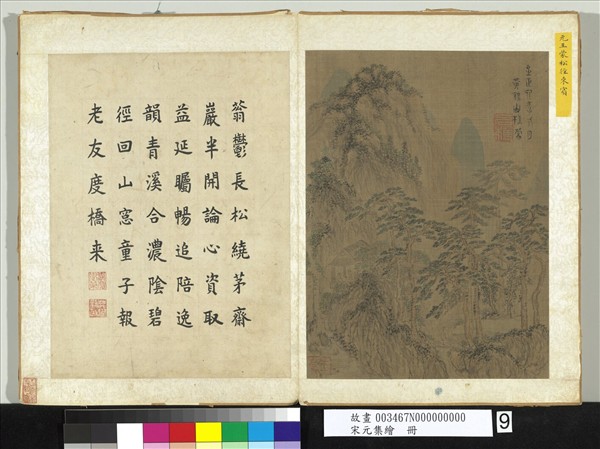 元王蒙松徑來賓
蓊鬱長松繞茅齋
巖半開論心資取
益延矚暢追陪逸
韻青溪合濃陰碧
徑回山窓童子報
老友度橋来
故畫 003467N000000000
宋元集繪 冊
9